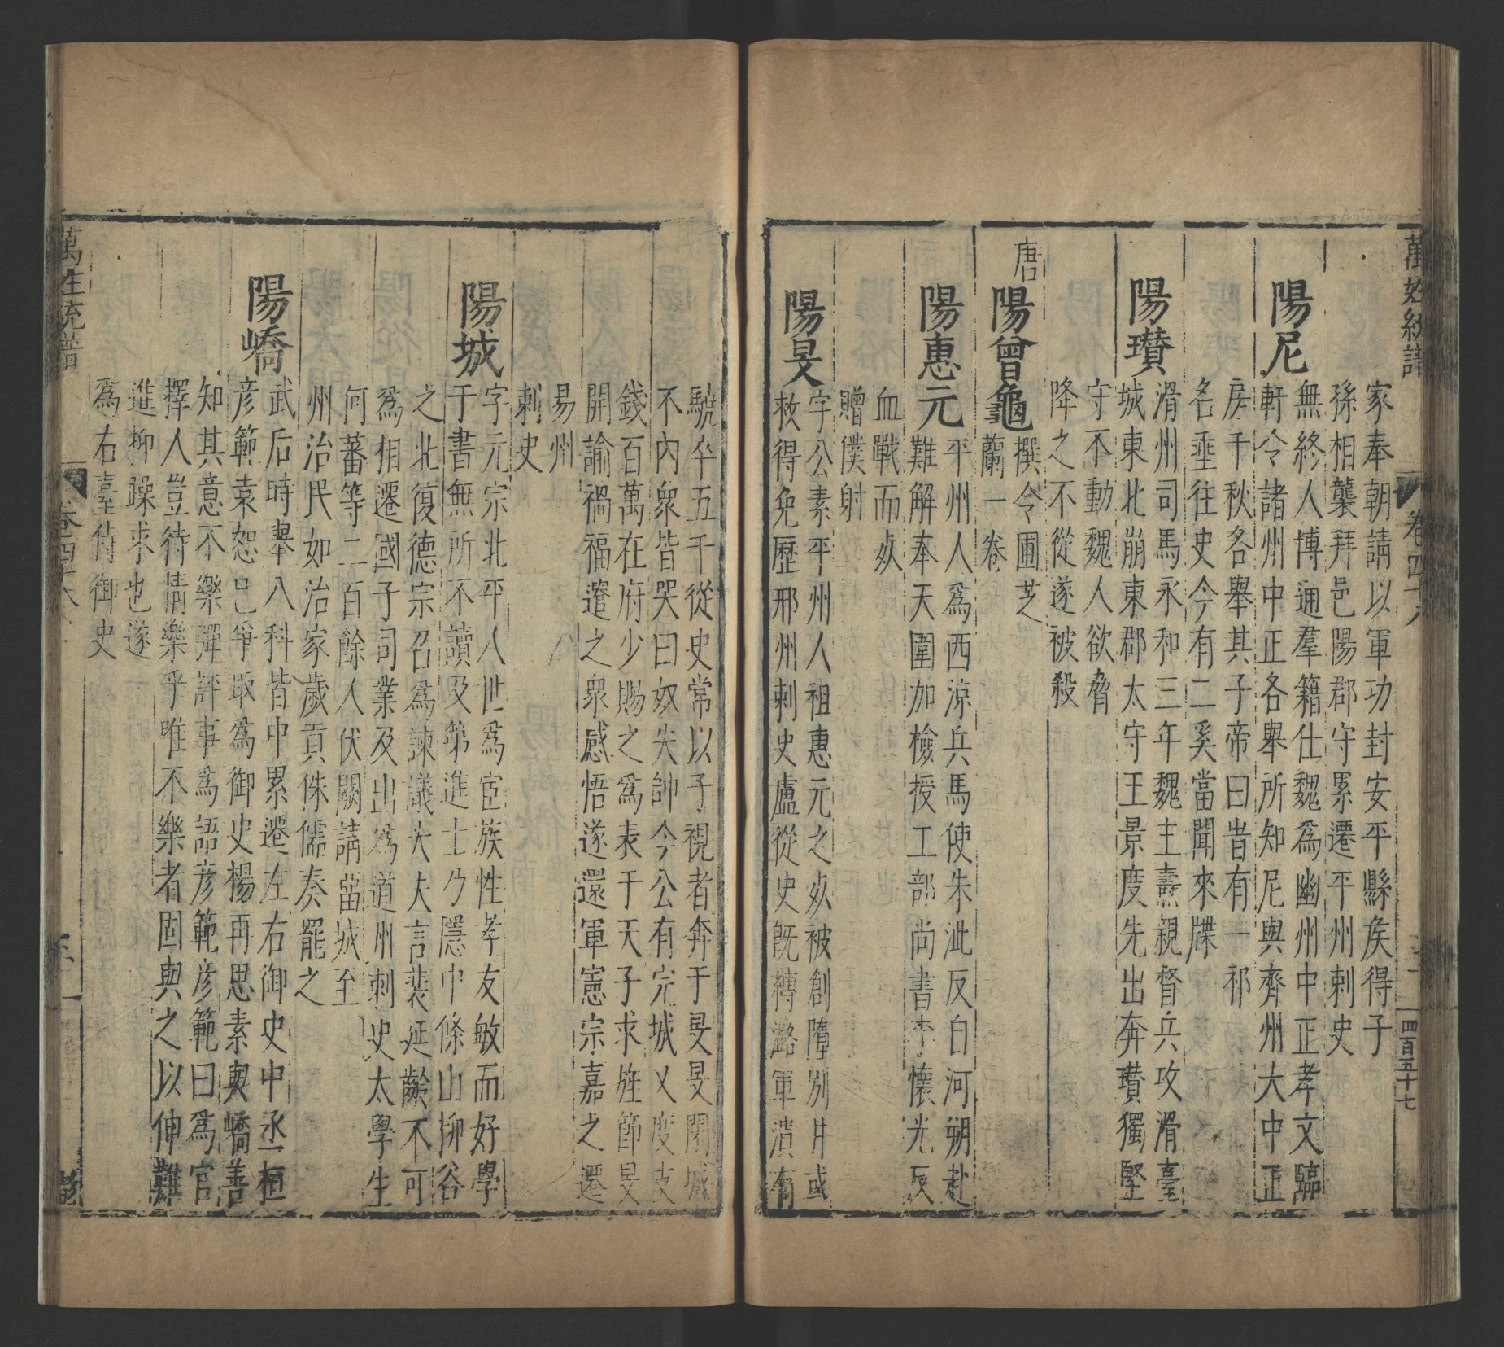 萬姓統譜
卷四十八
四百五十七
家奉朝請以軍功封安平縣侯得子
孫相襲拜邑陽郡守累遷平州刺史
陽尼
無終人博通羣籍仕魏為幽州中正孝文臨
軒令諸州中正各舉所知尼與齊州大中正
房千秋各舉其子帝曰昔有一祁
名垂往史今有二奚當聞來牒
陽瓚
滑州司馬永和三年魏主燾親督兵攻滑臺
城東北崩東郡太守王景度先出奔瓚獨堅
守不動魏人欲脅
降之不從遂被殺
唐
陽曾龜
撰令圃芝
蘭一卷
陽惠元
平州人為西涼兵馬使朱泚反自河朔赴
難解奉天圍加檢授工部尚書李懷光反
血戰而死
贈僕射
陽旻
字公素平州人祖惠元之死被創隨別井或
救得免歷邢州刺史盧從史既縛潞軍潰有
驍卒五千從史常以子視者奔于旻旻閉城
不內衆皆哭曰奴失帥今公有完城又度支
錢百萬在府少賜之為表于天子求旌節旻
開諭禍福遣之衆感悟遂還軍憲宗嘉之遷
易州
刺史
陽城
字元宗北平人世為宦族性孝友敏而好學
于書無所不讀及第進士乃隱中條山柳谷
之北復德宗召為諫議大夫言裴延齡不可
為相遷國子司業及出為道州刺史太學生
何蕃等二百餘人伏闕請留城至
州治民如治家歲貢侏儒奏罷之
陽嶠
武后時舉八科皆中累遷左右御史中丞桓
彦範袁恕己爭取為御史楊再思素與嶠善
知其意不樂彈評事為語彦範彦範曰為官
擇人豈待情樂乎唯不樂者固與之以伸難
進抑躁求也遂
為右臺侍御史
萬姓統譜
卷四十八